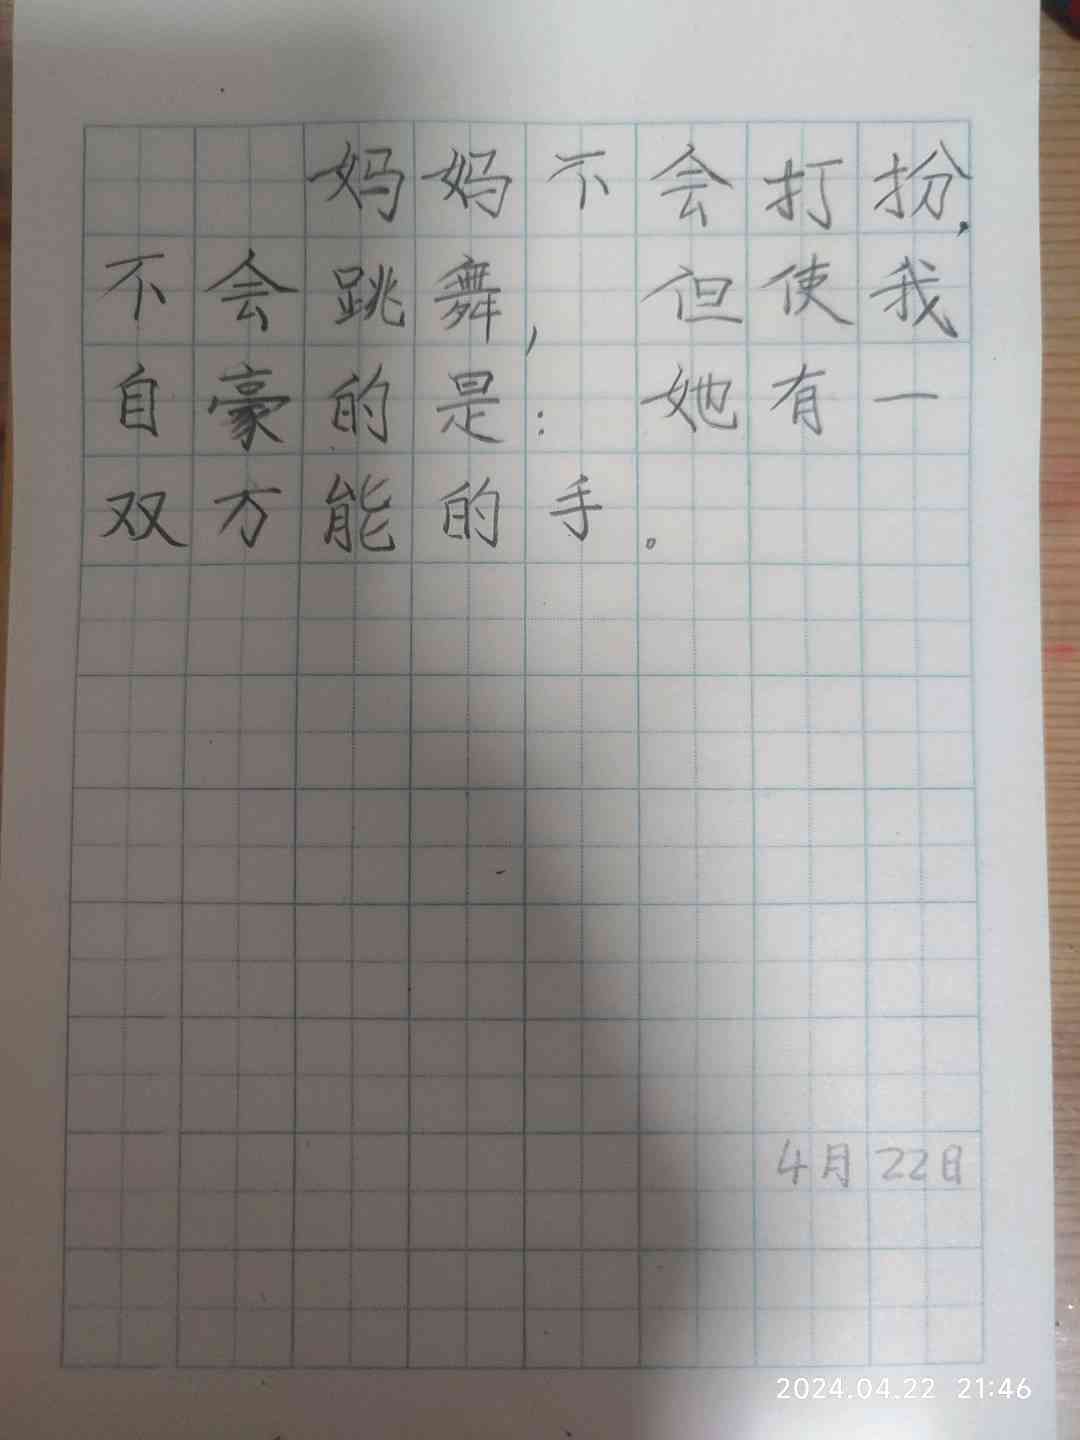 妈妈不会打扮,
不会跳舞,但使我
自豪的是:她有一
双万能的手。
4月22日
2024.04.22 21:46